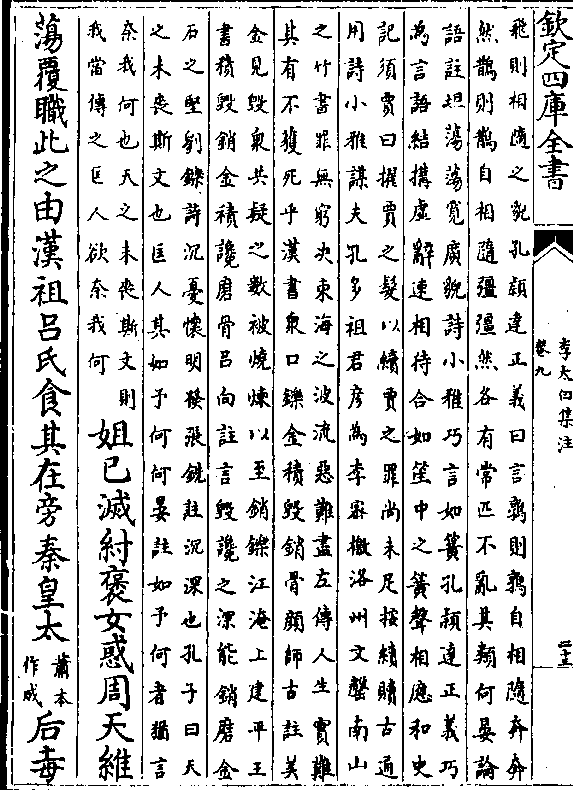 欽定四庫全書
李太白集注
卷九
飛則相隨之貌孔頴達正義曰言鶉則鶉自相隨奔奔
然鵲則鵲自相隨彊彊然各有常匹不亂其類何晏論
語註坦蕩蕩寛廣貌詩小雅巧言如簧孔頴達正義巧
為言語結搆虛辭速相待合如笙中之簧聲相應和史
記須賈曰擢賈之髮以續賈之罪尚未足按續贖古通
用詩小雅謀夫孔多祖君彥為李宻檄洛州文罄南山
之竹書罪無窮决東海之波流惡難盡左傳人生實難
其有不獲死乎漢書衆口鑠金積毁銷骨顔師古註美
金見毁衆共疑之數被燒煉以至銷鑠江淹上建平王
書積毁銷金積讒磨骨呂向註言毁讒之深能銷磨金
石之堅剄鑠詩沉憂懷明發張銑註沉深也孔子曰天
之未喪斯文也匡人其如予何何晏註如予何者猶言
奈我何也天之未喪斯文則
我當傳之匡人欲奈我何
妲已滅紂褒女惑周天維
蕩覆職此之由漢祖吕氏食其在旁秦皇太
蕭本
作成
后毒